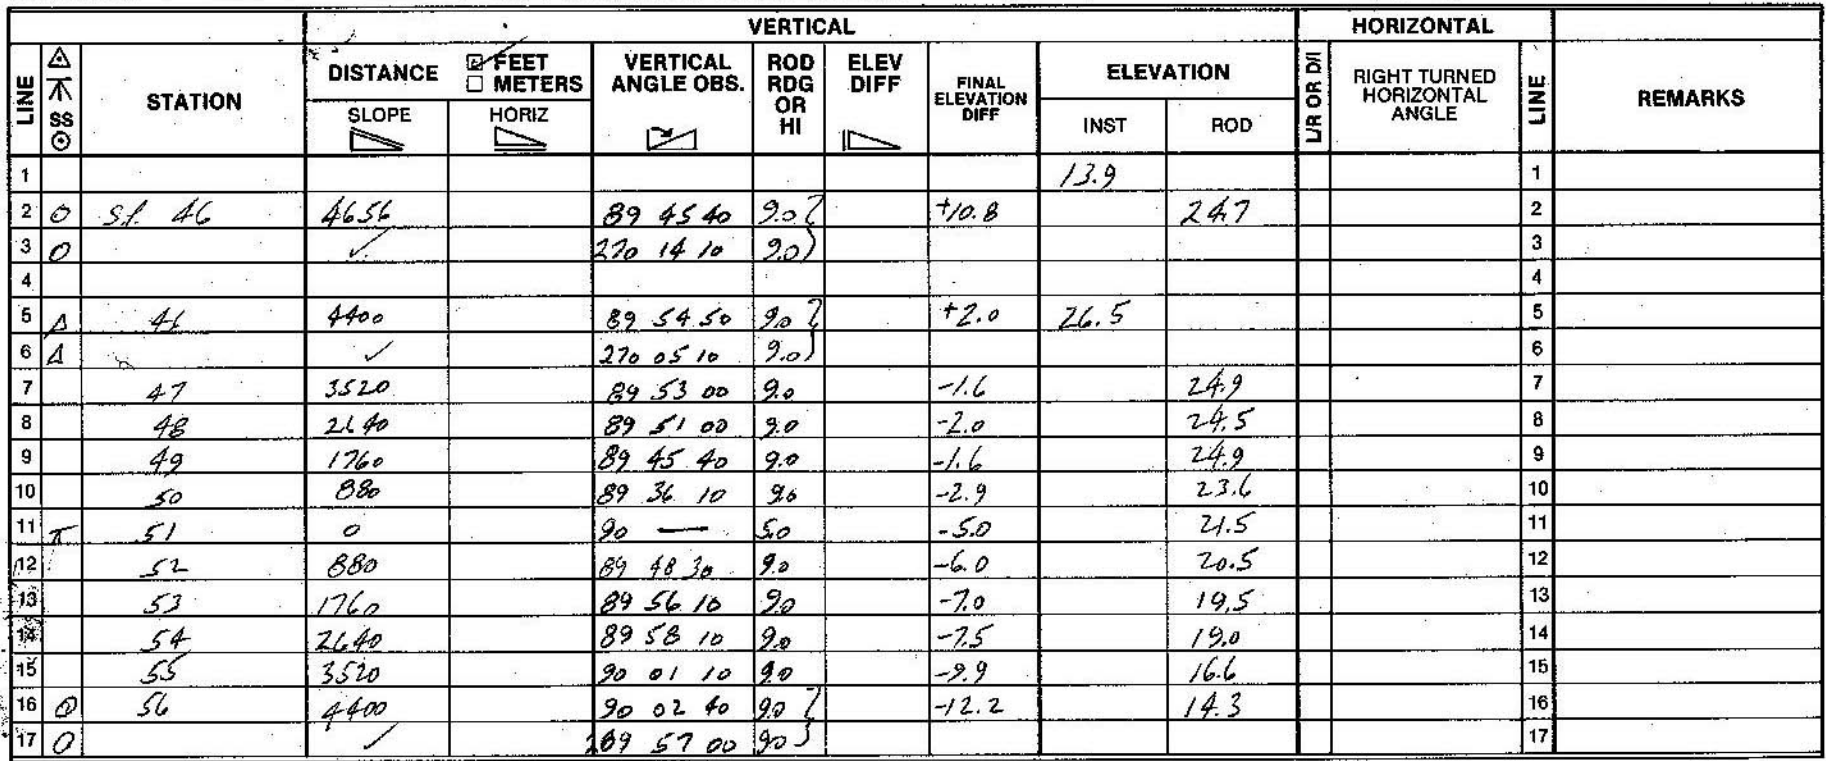 VERTICAL HORIZONTAL
LINE SS STATION DISTANCE FEET METERS SLOPE HORIZ VERTICAL ANGLE OBS. ROD RDG OR HI ELEV DIFF FINAL ELEVATION DIFF ELEVATION INST ROD L/R OR D/I RIGHT TURNED HORIZONTAL ANGLE LINE REMARKS
1 13.9 1
2 O St. 46 4656 89 45 40 9.0 +10.8 24.7 2
3 O ✓ 270 14 10 9.0 3
4 4
5 Δ 46 4400 89 54 50 9.0 +2.0 26.5 5
6 Δ ✓ 270 05 10 9.0 6
7 47 3520 89 53 00 9.0 -1.6 24.9 7
8 48 2640 89 51 00 9.0 -2.0 24.5 8
9 49 1760 89 45 40 9.0 -1.6 24.9 9
10 50 880 89 36 10 9.0 -2.9 23.6 10
11 π 51 0 90 — 5.0 -5.0 21.5 11
12 52 880 89 48 30 9.0 -6.0 20.5 12
13 53 1760 89 56 10 9.0 -7.0 19.5 13
14 54 2640 89 58 10 9.0 -7.5 19.0 14
15 55 3520 90 01 10 9.0 -9.9 16.6 15
16 O 56 4400 90 02 40 9.0 -12.2 14.3 16
17 O ✓ 269 57 00 9.0 17